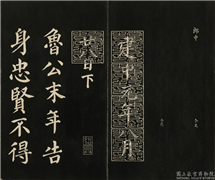 郎中
建中元年八月
廿八日下
魯公末年告
身忠賢不得